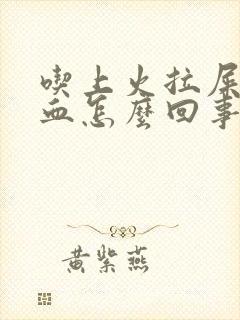 喫上火拉屎
血怎麼回事
黃紫燕